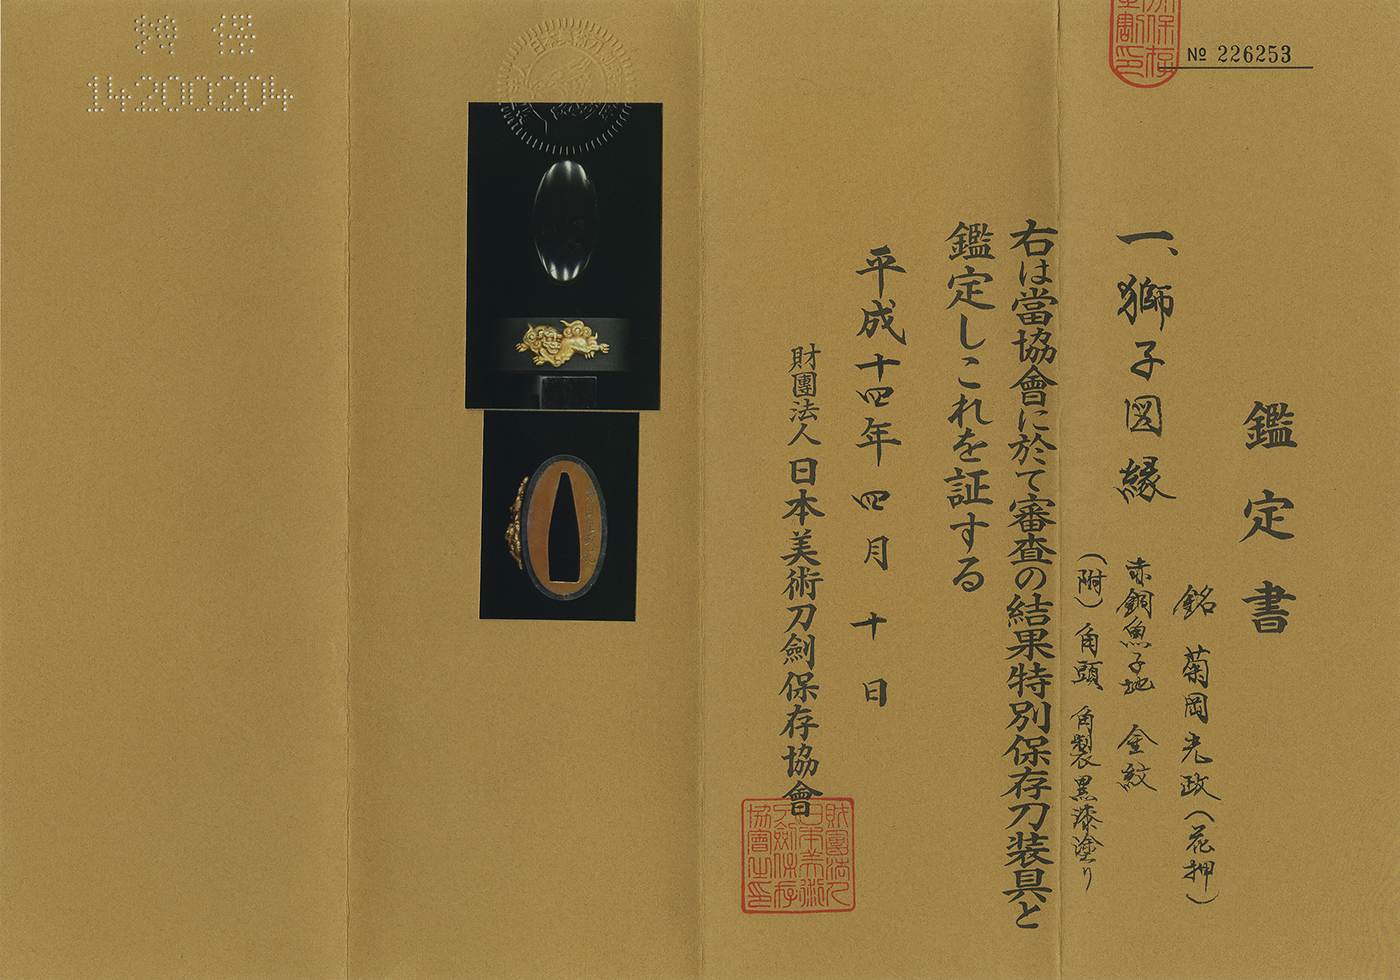 № 226253
鑑定書
一、獅子図縁
銘 菊岡光政(花押)
赤銅魚子地 金紋
(附)角頭 角製黒漆塗り
右は當協會に於て審査の結果特別保存刀装具と
鑑定しこれを証する
平成十四年四月十日
財團法人日本美術刀劍保存協會
財團法人
日本美術
刀劍保存
協會之印
特保
14200204